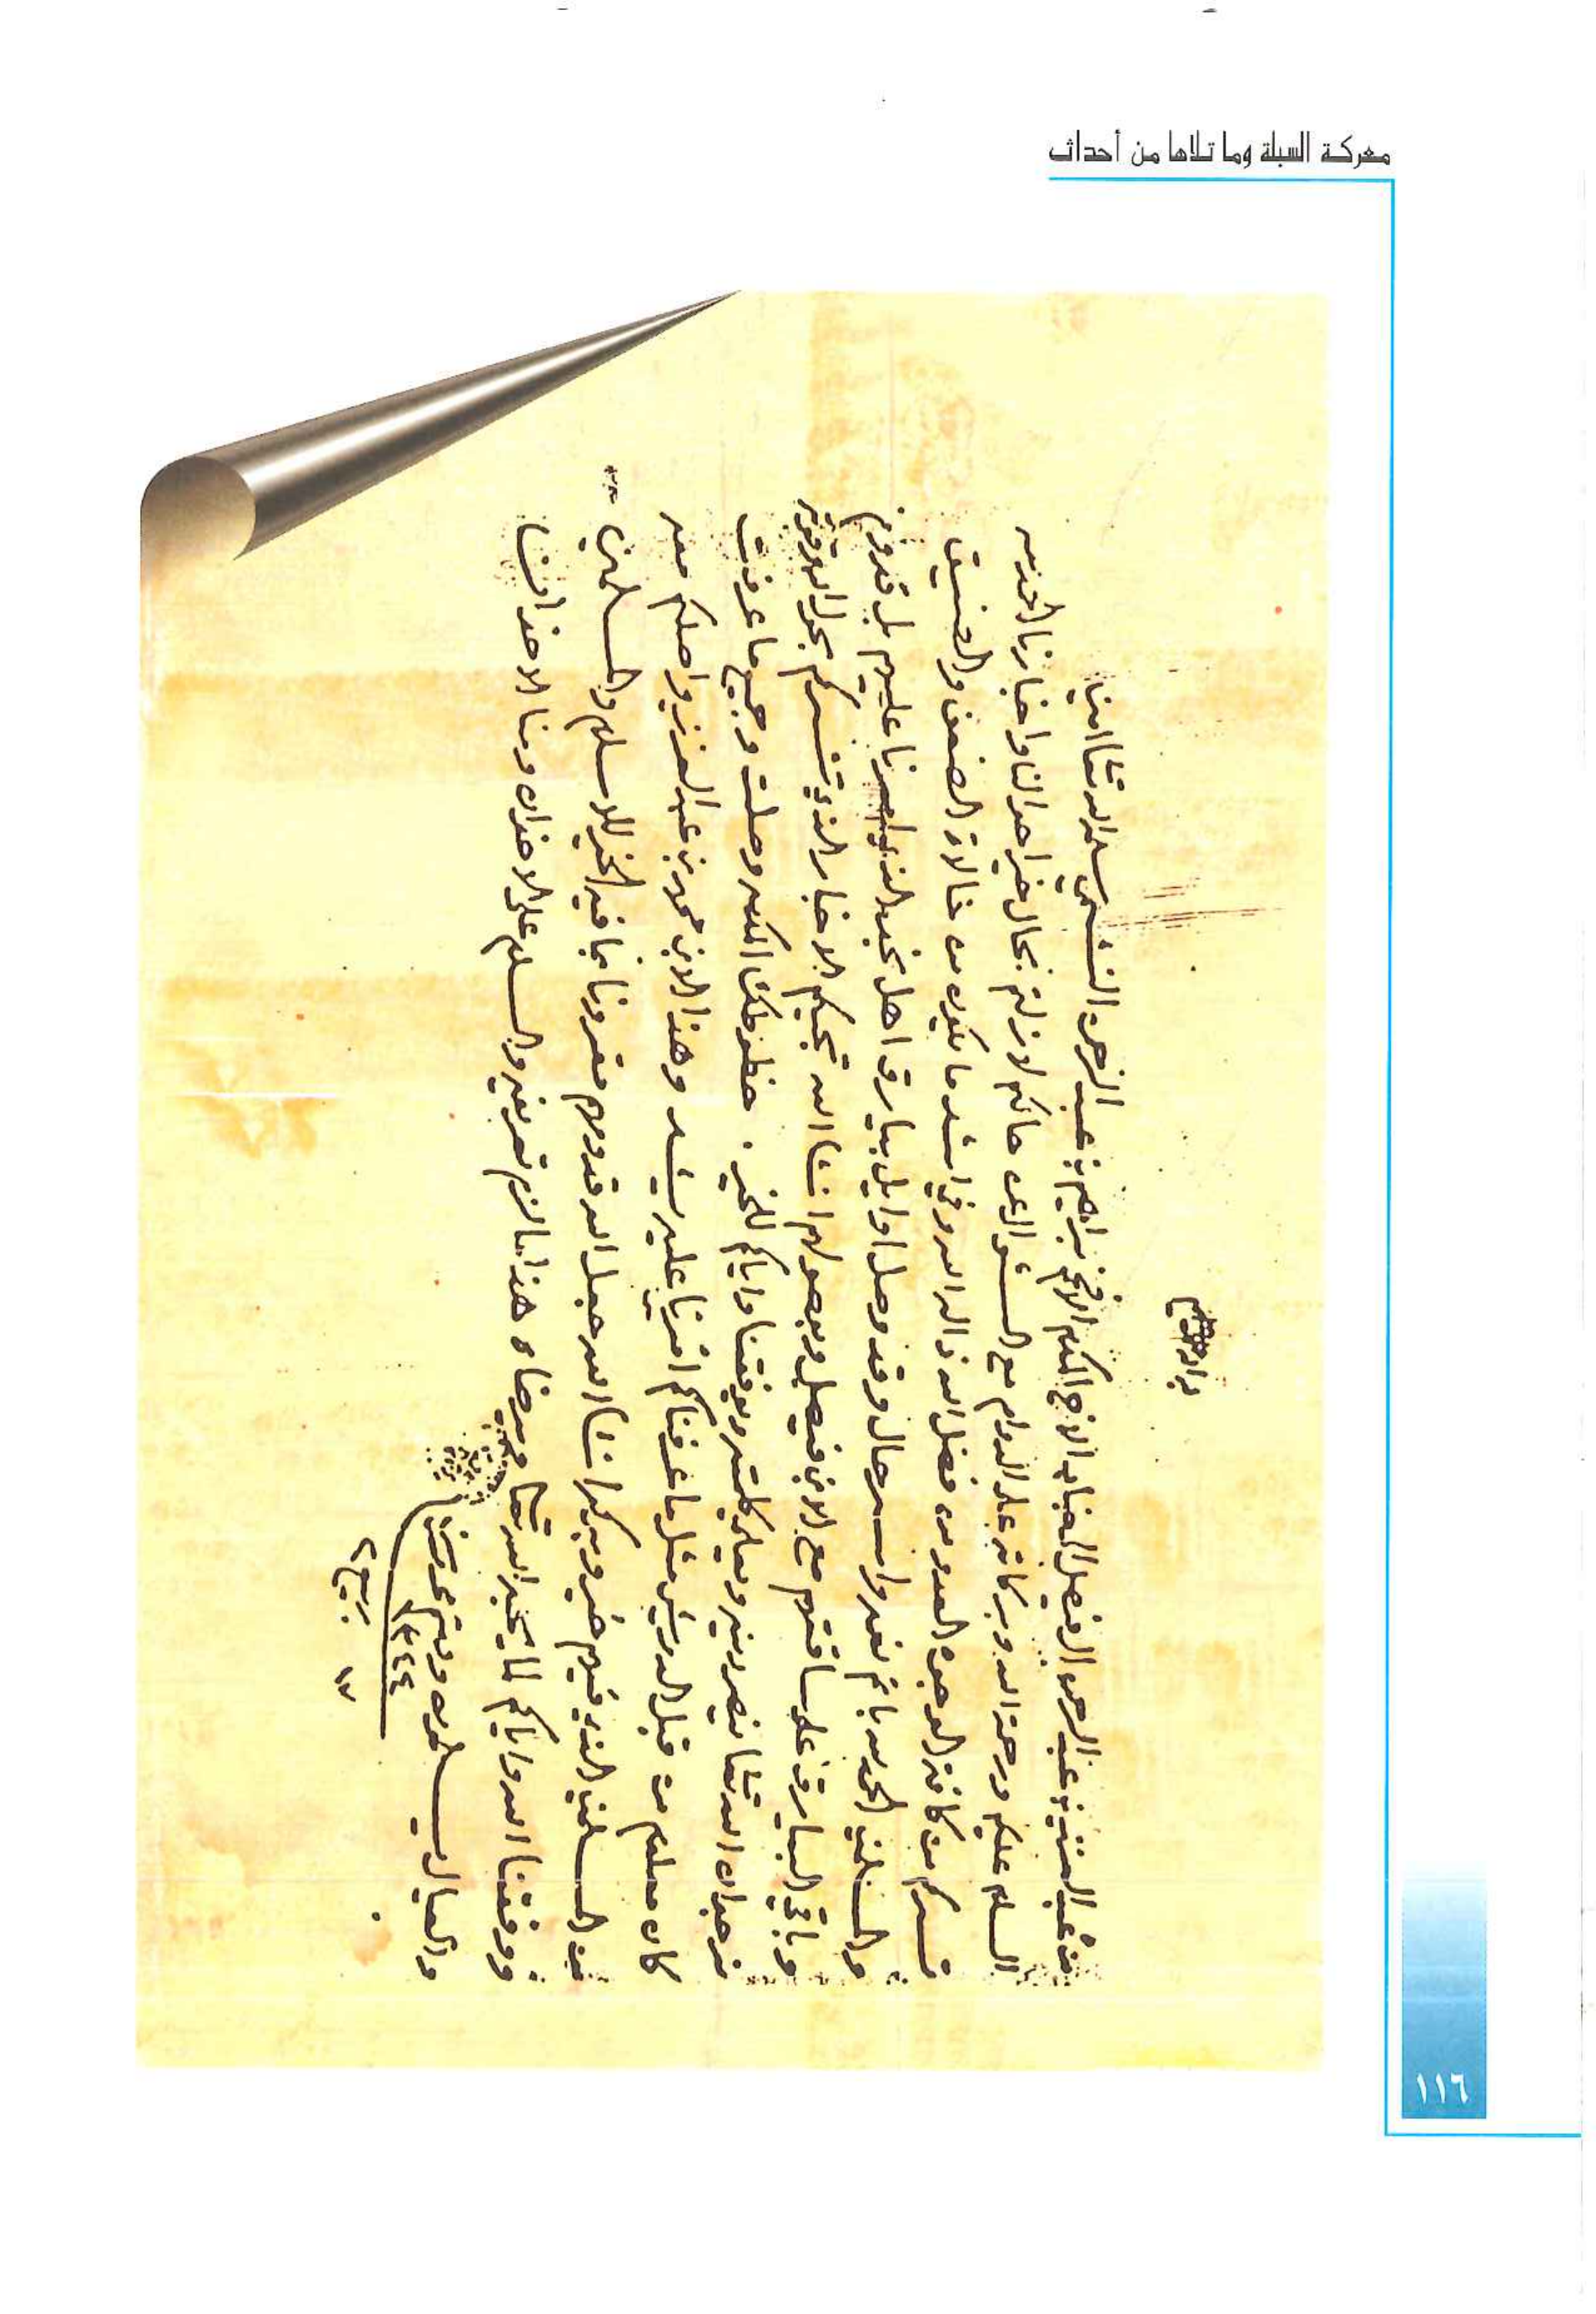 معركة السبلة وما تلاها من أحداث
من عبد العزيز بن عبد الرحمن الفيصل الى جناب الاخ المكرم الافخم براهيم بن عبد الرحمن النشمي سلمه الله تعالى امين
السلام عليكم ورحمة الله وبركاته على الدوام مع السؤال عن حالكم لازلتم بحال خير احوالنا واخبارنا الحمد لله
تسركم من كافة الوجوه العدو من فضل الله ذاله الله وفي اشد ما يكون من خالات الضعف والضيق
والمسلمين الحمد لله باتم نعمه واسر حال وقد وصل اوايل بيارق اهل نجد الذي امرنا عليهم بل قدوم
وباقي البيارق على ساقتهم مع الابن فيصل وبوصولهم انشا الله تجيكم الاخبار الذي تسركم بحول الله وقوته
نرجو ان الله تعالى ينصر دينه ويعلي كلمته ويوفقنا واياكم للخير . خطوطك المكرمه وصلت وجميع ما عرفت
كان معلوم من قبل الدويش مثل ما عرفناكم اشرنا عليه وهذا الابن محمد بن عبد العزيز واصلكم معه
من المسلمين الذي فيهم خير وبركه انشا الله جعل الله قدومهم مقرونا بما فيه الخير للاسلام والمسلمين
ووفقنا الله واياكم لما يحبه الله تعالى ويرضاه هذا ما لزم تعريفه والسلام على الاخوان ومنا الاخوان
والعيال يسلمون ودمتم محروسين
١٣ ربيع ٢
١١٦